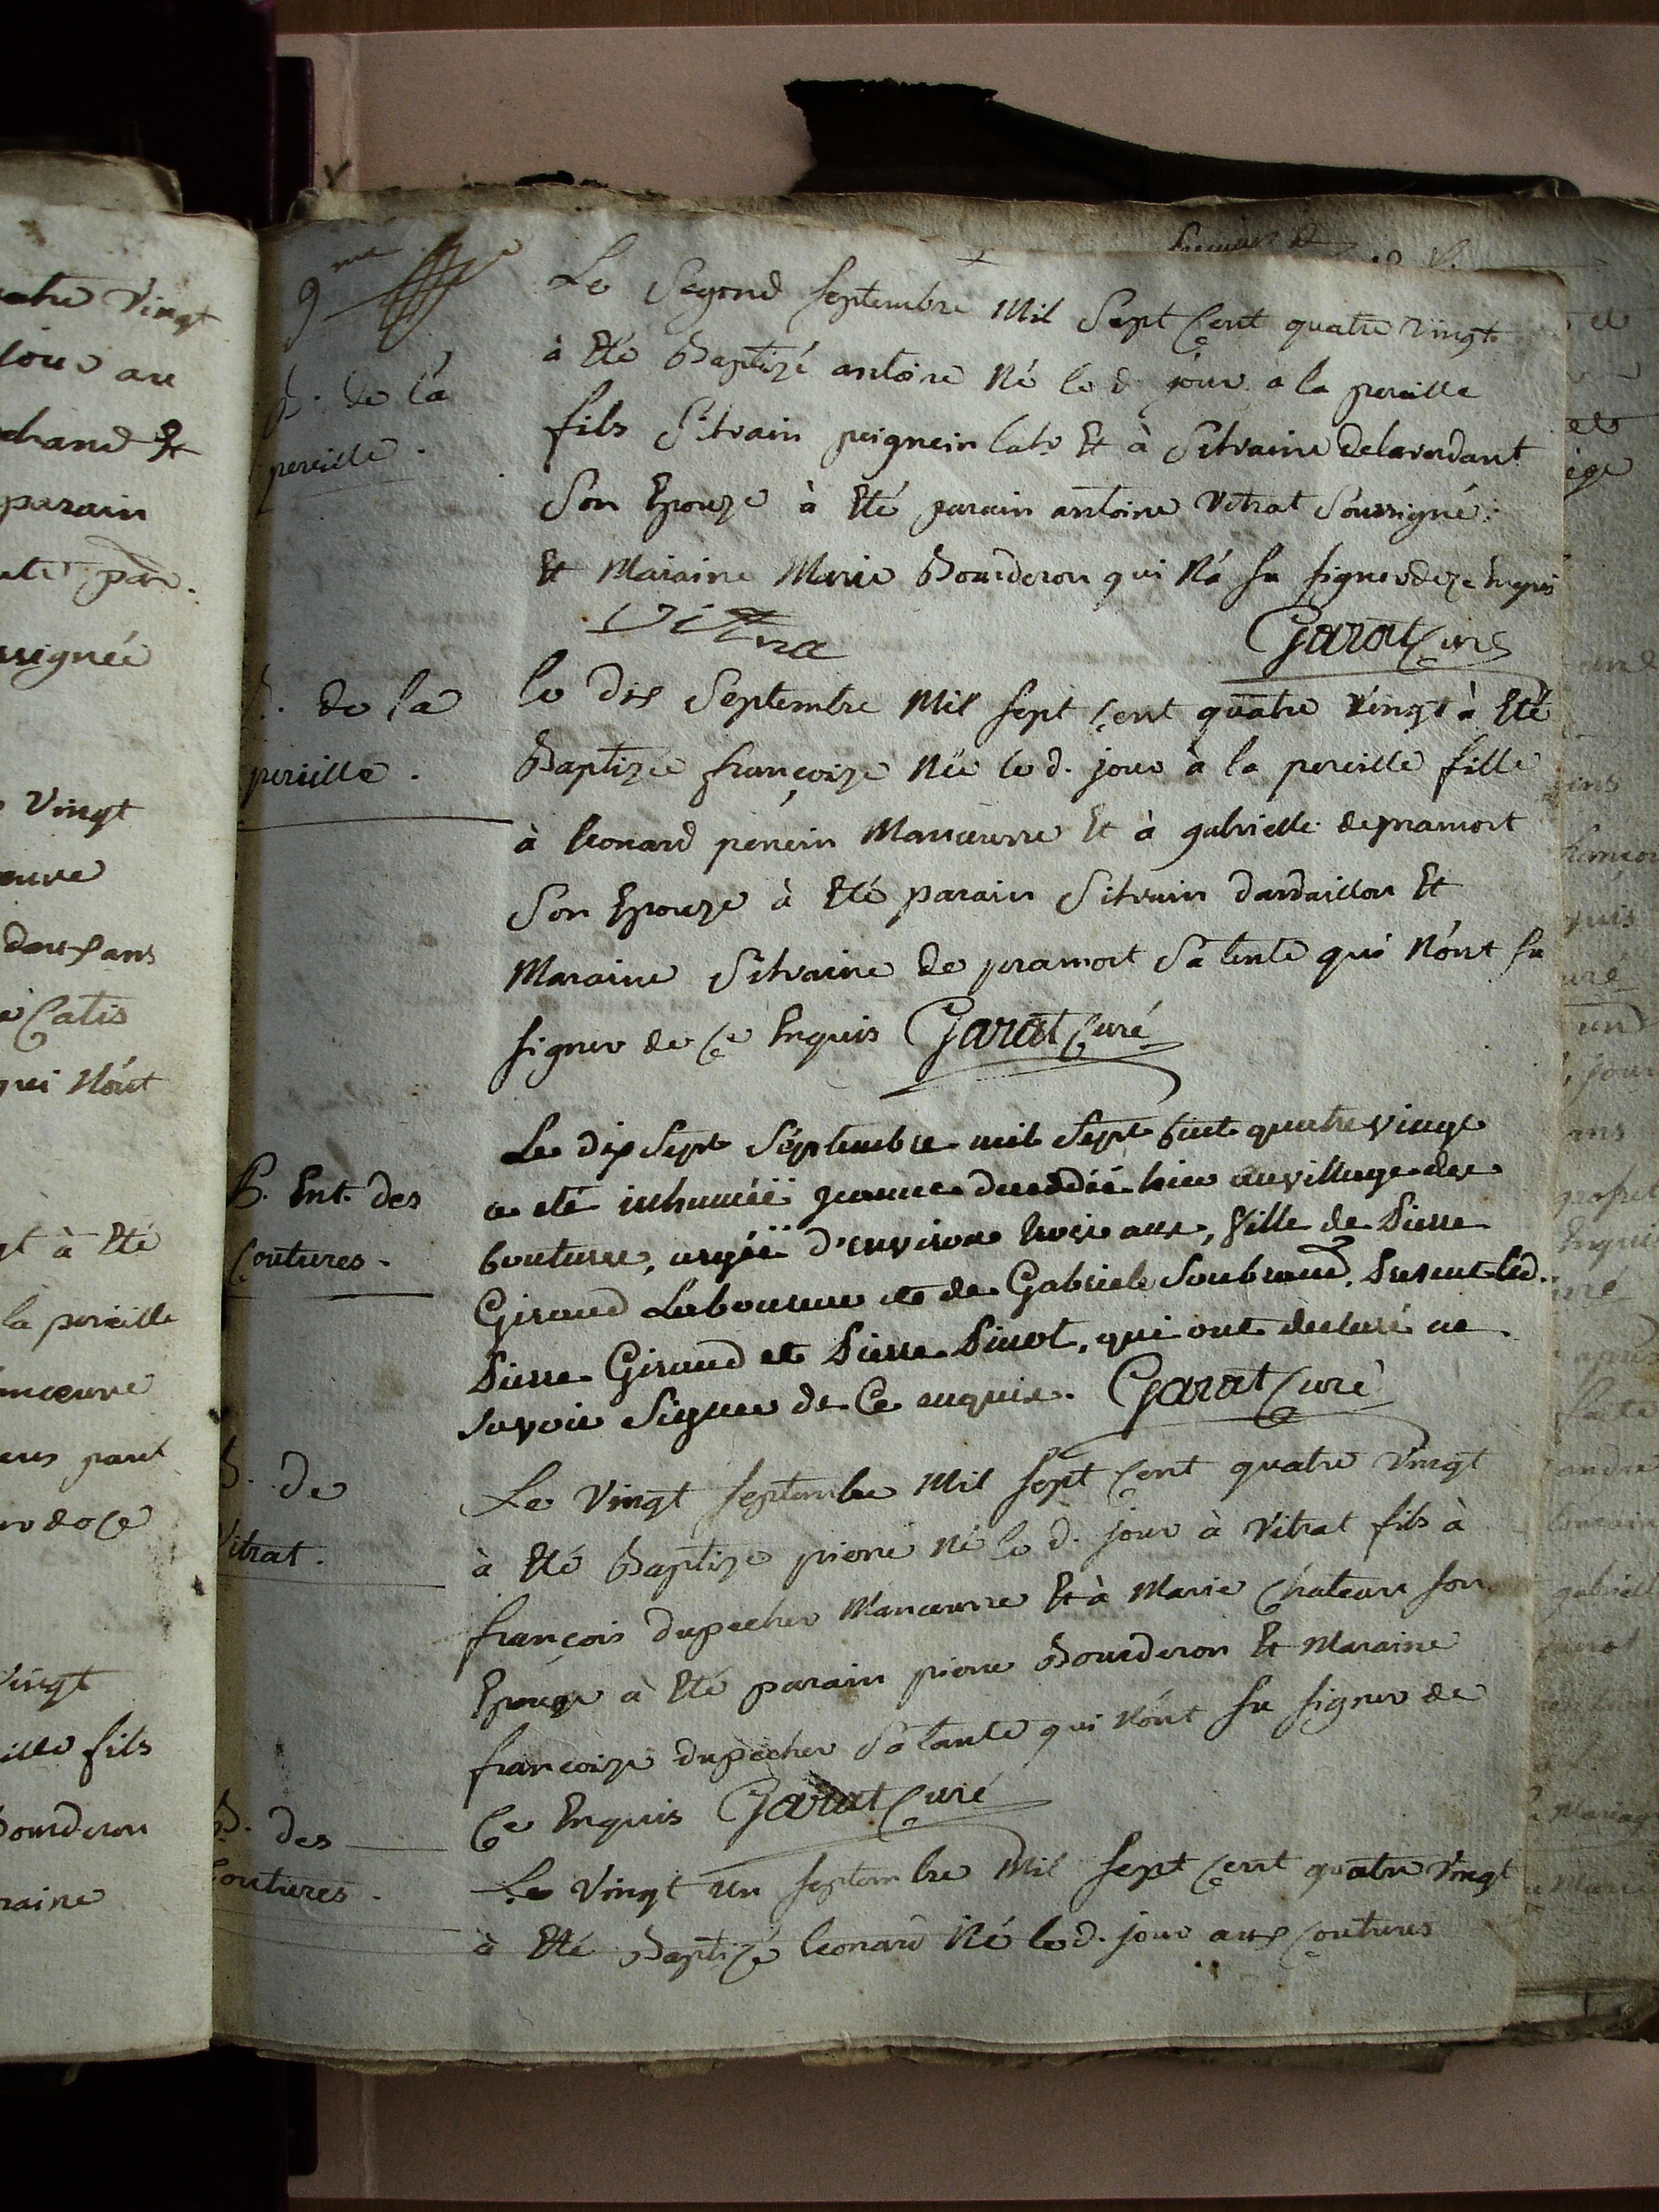 9me
Le Segond septembre Mil Sept Cent quatre vingt
à Eté Baptizé antoine Né le d. jour a la pereille
B. de la
pereille.
fils Silvain peignein lats Et à Silvaine delavaudant
Son Epouze à Eté parain antoine Vitrat Soussigné
Et Maraine Marie Bourderon qui N'a su signer de Ce Enquis
Vittra
Garat Curé
B. de la
pereille.
le dix Septembre Mil sept Cent quatre Vingt à Eté
Baptizée françoize Née le d. jour à la pereille fille
à leonard penein Manœuvre Et à gabrielle depramort
Son Epouze à Eté parain Silvain dardaillon Et
Maraine Silvaine de pramort Sa tente qui N'ont su
signer de Ce Enquis Garat Curé
B. Ent. des
Coutures.
Le dix Sept Septembre mil Sept Cent quatre vingt
a eté inhuméë jeanne decedéé hier au village des
Coutures, agéë d'environ trois ans, fille de Pierre
Giraud Laboureur et de Gabriele Soubrand. Present led.
Pierre Giraud et Pierre Pinot, qui ont declaré ne
savoir Signer de Ce enquis. Garat Curé
B. de
Vitrat.
Le Vingt septembre Mil sept Cent quatre Vingt
à Eté Baptize pierre Né le d. jour à Vitrat fils à
françois dupecher Manœuvre Et à Marie Chateau son
Epouze à Eté parain pierre Bourderon Et Maraine
francoize dupecher Sa tante qui N'ont su signer de
Ce Enquis Garat Curé
B. des
Coutures.
Le Vingt un septembre Mil sept Cent quatre Vingt
à Eté Baptizé leonard Né le d. jour aux Coutures